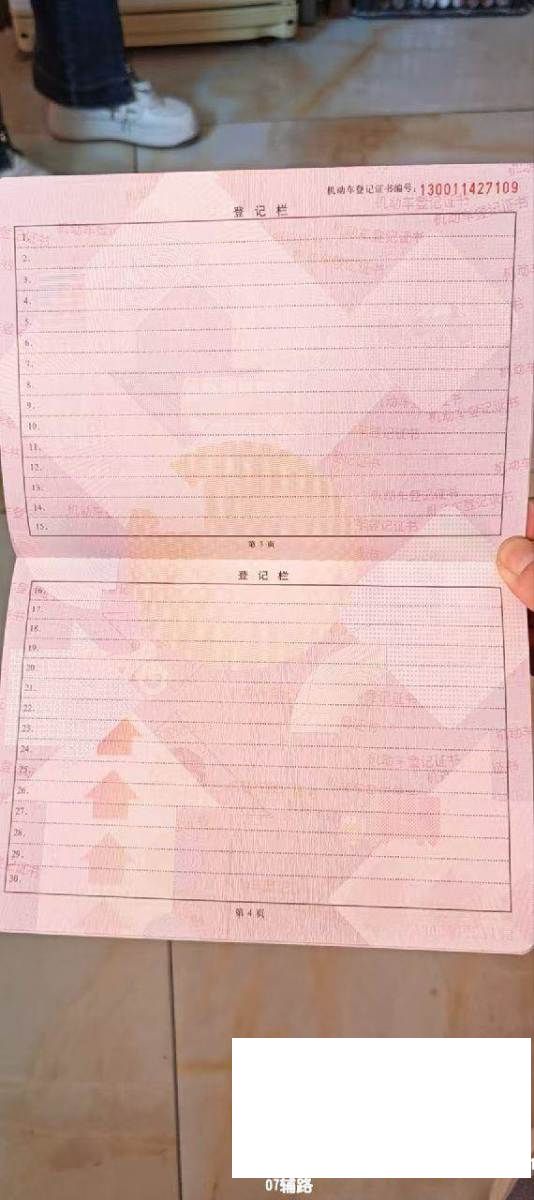 机动车登记证书编号：130011427109
登 记 栏
1.
2.
3.
4.
5.
6.
7.
8.
9.
10.
11.
12.
13.
14.
15.
第 3 页
登 记 栏
16.
17.
18.
19.
20.
21.
22.
23.
24.
25.
26.
27.
28.
29.
30.
第 4 页
07辅路